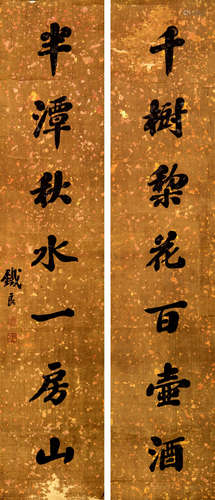 千樹梨花百壺酒
半潭秋水一房山
鐵良